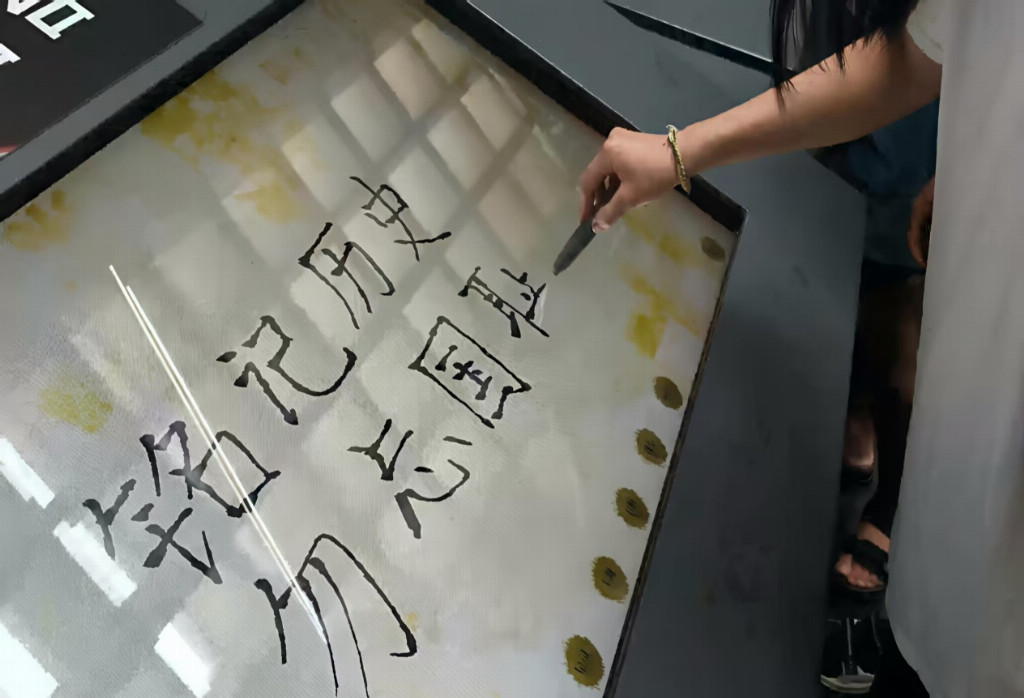 铭记历史
勿忘国耻